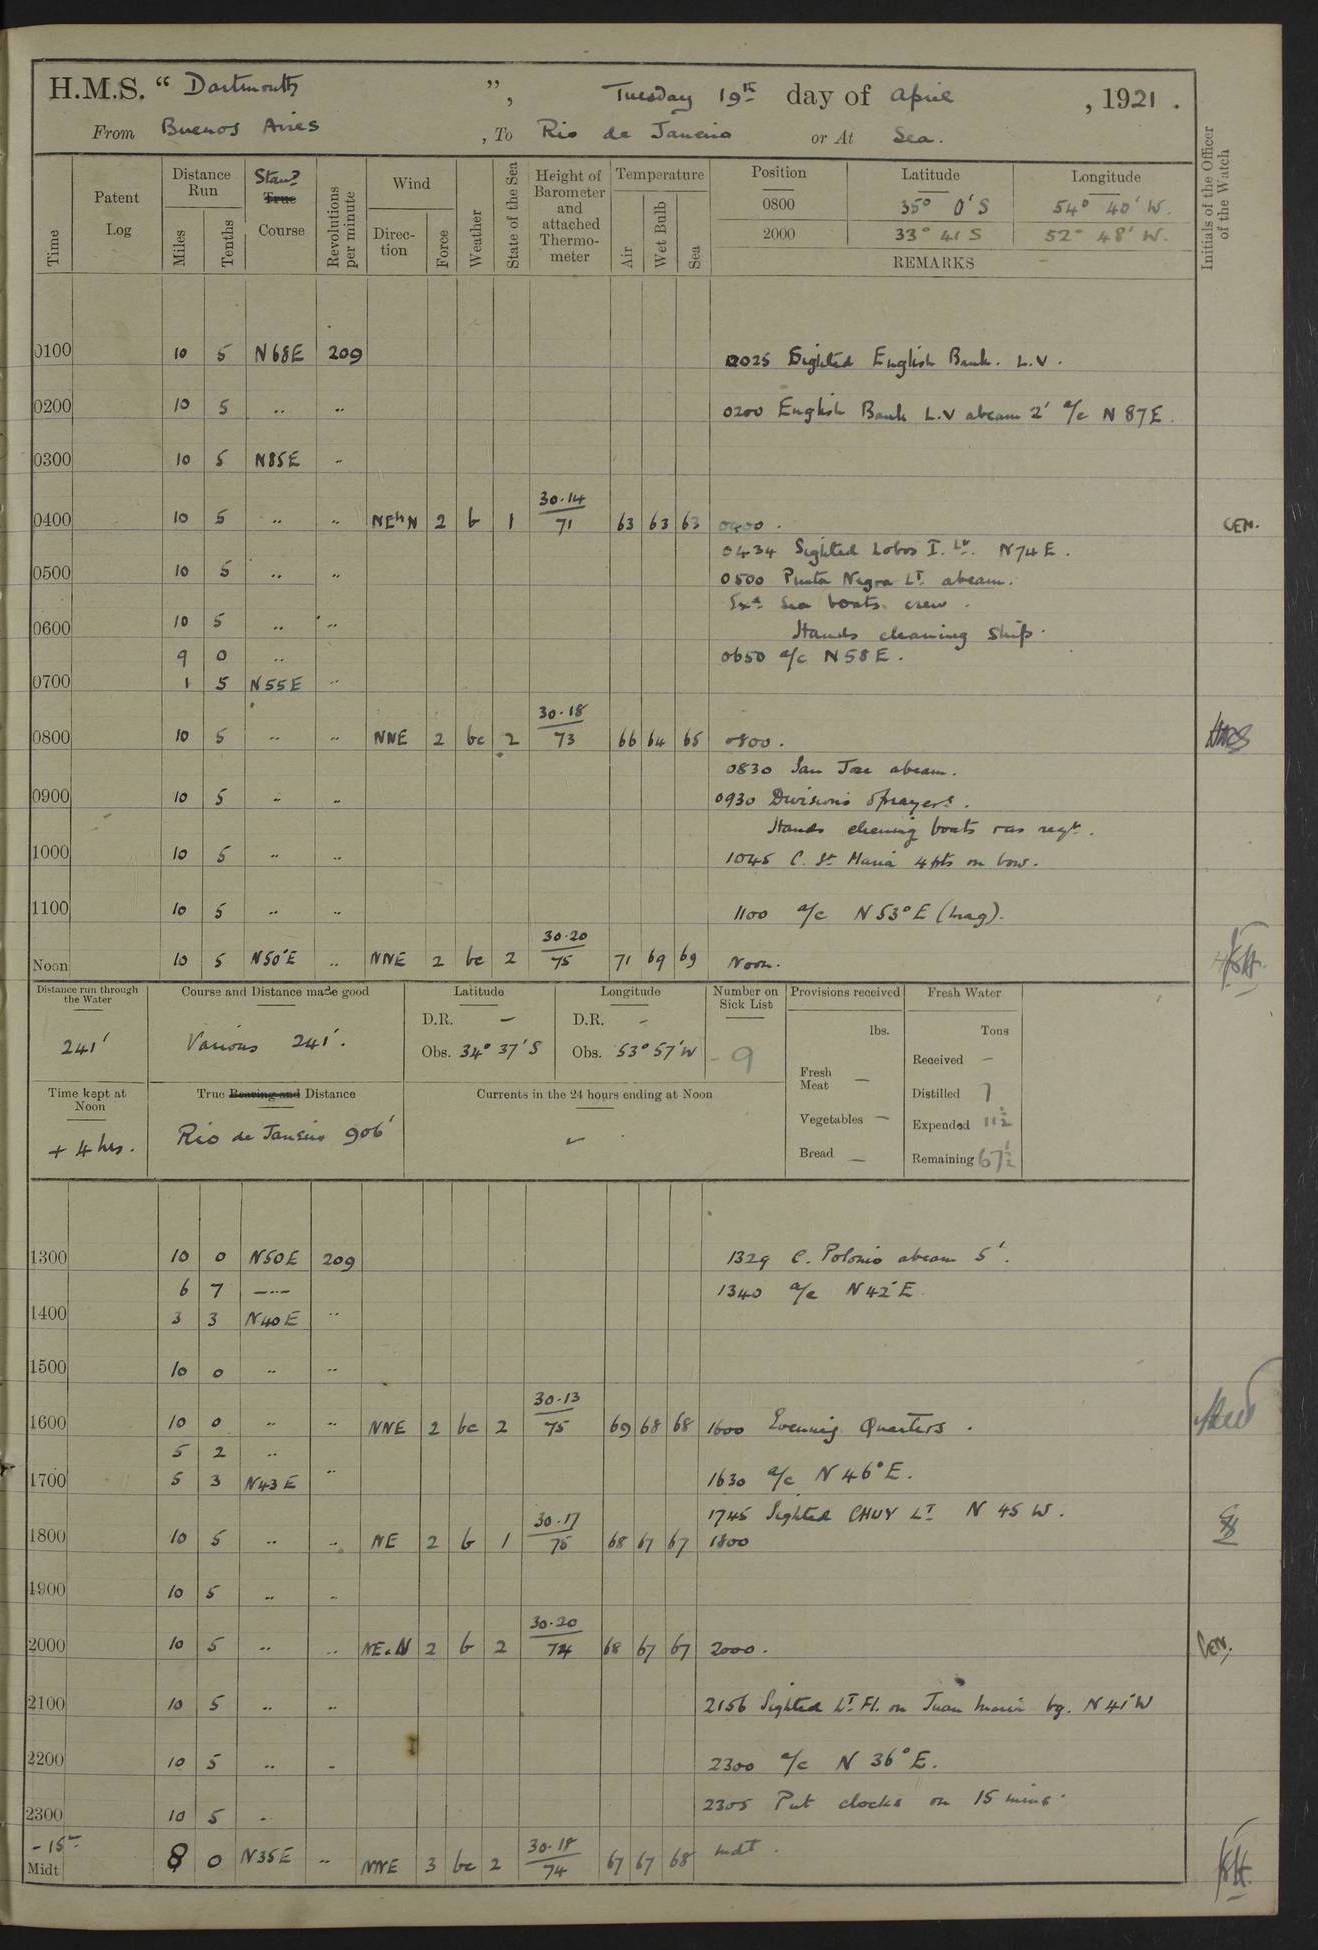 H.M.S. “ Dartmouth ”, Tuesday 19th day of April , 1921 .
From Buenos Aires , To Rio de Janeiro or At Sea.
Time
Patent Log
Distance Run Miles Tenths
Stand. True Course
Revolutions per minute
Wind Direction Force
Weather
State of the Sea
Height of Barometer and attached Thermometer
Temperature Air Wet Bulb Sea
Position Latitude Longitude
0800 35° 0' S 54° 40' W.
2000 33° 41 S 52° 48' W.
REMARKS
Initials of the Officer of the Watch
0100 10 5 N68E 209 0025 Sighted English Bank. L.V.
0200 10 5 .. .. 0200 English Bank L.V abeam 2' a/c N 87 E.
0300 10 5 N85E ..
0400 10 5 .. .. NE'N 2 b 1 30.14 71 63 63 63 0400 . CEM.
0434 Sighted Lobos I. Lt. N74E.
0500 10 5 .. .. 0500 Punta Negra Lt. abeam.
Exd. Sea boats crew.
0600 10 5 .. .. Hands cleaning Ship.
9 0 .. 0650 a/c N58E.
0700 1 5 N55E ..
0800 10 5 .. .. NNE 2 bc 2 30.18 73 66 64 65 0800.
0830 San Jose abeam.
0900 10 5 .. .. 0930 Divisions & prayers.
Hands cleaning boats &as reqd.
1000 10 5 .. .. 1045 C. St Maria 4 pts on bow.
1100 10 5 .. .. 1100 a/c N 53° E (mag).
Noon 10 5 N50°E .. NNE 2 bc 2 30.20 75 71 69 69 Noon.
Distance run through the Water 241'
Course and Distance made good Various 241'.
Latitude D.R. – Obs. 34° 37' S
Longitude D.R. – Obs. 53° 57' W
Number on Sick List 9
Provisions received lbs.
Fresh Meat —
Vegetables —
Bread —
Fresh Water Tons
Received —
Distilled 7
Expended 11½
Remaining 67½
Time kept at Noon + 4 hrs.
True Bearing and Distance Rio de Janeiro 906'
Currents in the 24 hours ending at Noon
1300 10 0 N50E 209 1329 C. Polonio abeam 5'.
6 7 —..— 1340 a/c N 42° E.
1400 3 3 N40E ..
1500 10 0 .. ..
1600 10 0 .. .. NNE 2 bc 2 30.13 75 69 68 68 1600 Evening Quarters.
5 2 ..
1700 5 3 N43E .. 1630 a/c N 46° E.
1745 Sighted CHUY LT N 45 W.
1800 10 5 .. .. NE 2 b 1 30.17 75 68 67 67 1800
1900 10 5 .. ..
2000 10 5 .. .. NE.N 2 b 2 30.20 74 68 67 67 2000. CEM.
2100 10 5 .. .. 2156 Sighted LT. Fl. on Juan Maria bg. N 41° W
2200 10 5 .. .. 2300 a/c N 36° E.
2305 Put clocks on 15 mins.
2300 10 5 ..
– 15m Midt 8 0 N35E .. NNE 3 bc 2 30.18 74 67 67 68 mdt.